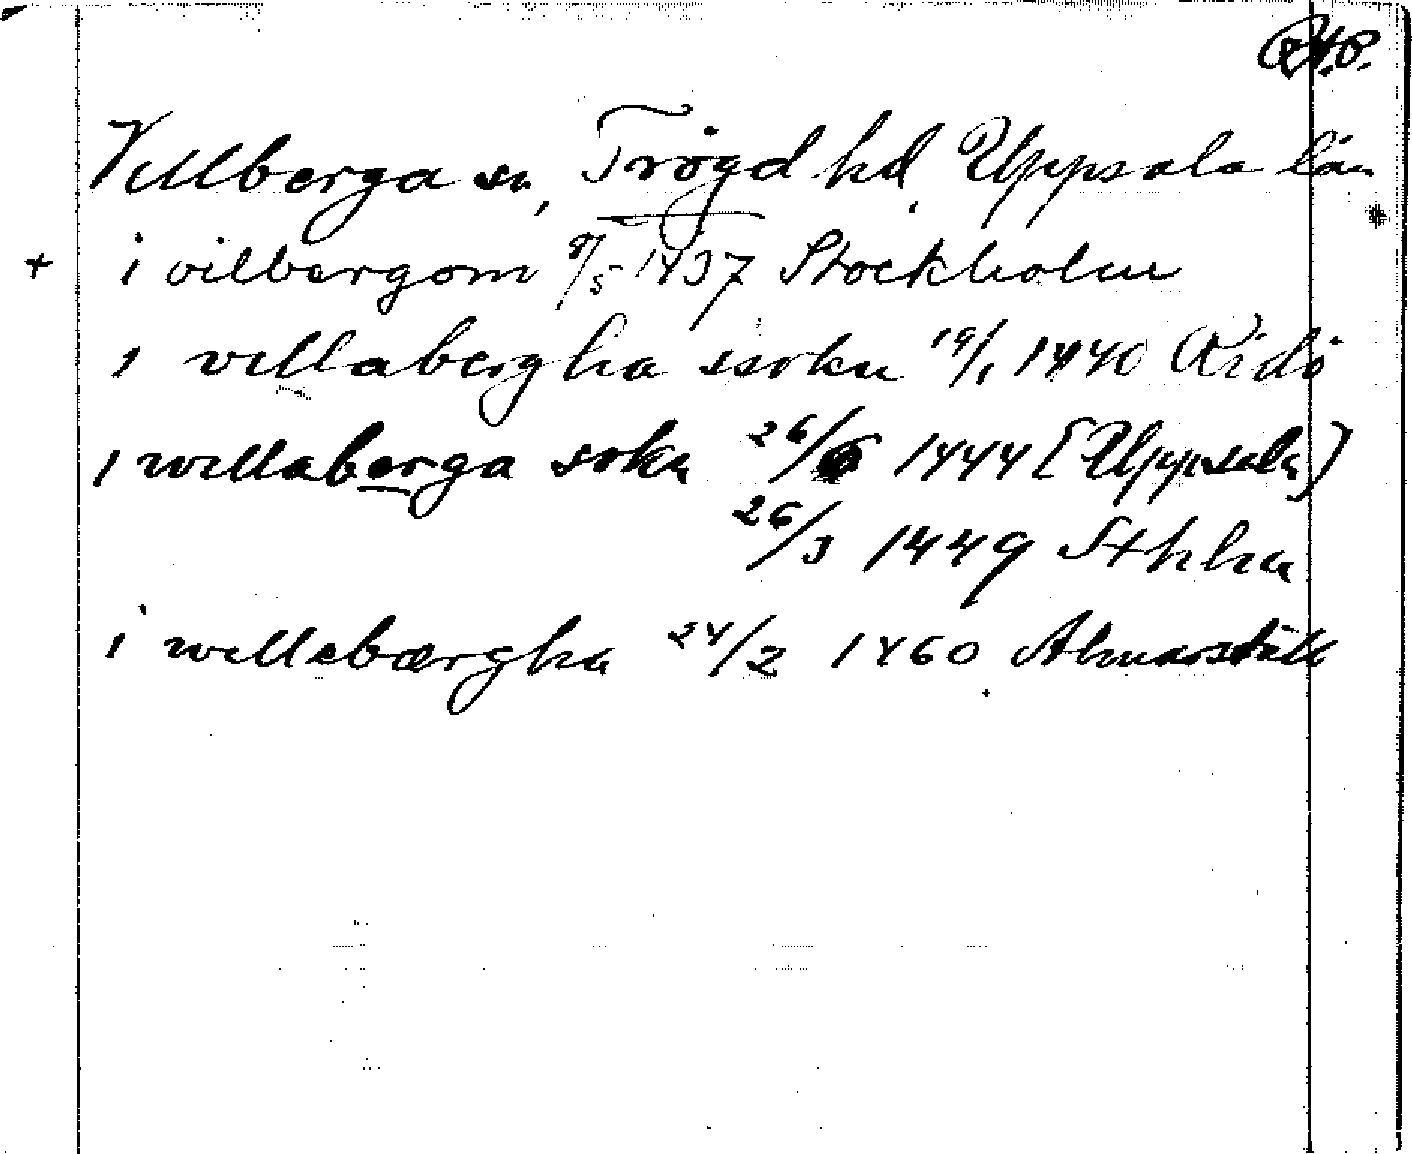 RAP.
Villberga sn, Trögd hd, Uppsala län
+ i vilbergom 8/5 1437 Stockholm
i villabergha ssokn 19/1 1440 Ridö
i willaberga sokn 26/6 1444 [Uppsala]
26/3 1449 Sthlm
i willebærgha 24/2 1460 Almarstäk